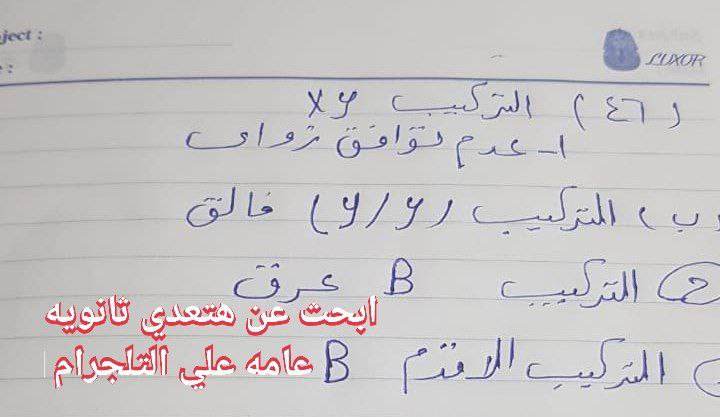 ject :
LUXOR
e :
(٤٦) التركيب xy
١- عدم توافق زواى
ب) التركيب (y/y) فالق
2 التركيب B عرق
التركيب الاقدم B
ابحت عن هتعدي ثانويه
عامه علي التلجرام